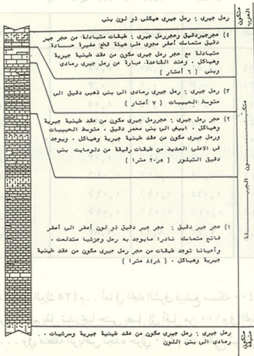 رمل جيرى : رمل جيرى هيكلى ذو لون بنى
٤) حجرجيردقيق وحجررمل جيرى : طبقات متبادلة من حجر جير
دقيق متماسك أصفر محوى على هيئة قطع صغيرة حادة
متبادلة مع حجر رمل جيرى مكون من مقد طينية جيرية
وهياكل . وعند القاعدة عبارة عن رمل جيرى رمادى
وبنى ( ٦ أمتار )
٣) رمل جيرى : رمل جيرى رمادى الى بنى ذهبى دقيق الى
متوسط الحبيبات ( ٧ أمتار )
٢) حجر رمل جيرى مكون من مقد طينية جيرية
وهياكل ، أبيض الى بنى محمر دقيق ، متوسط الحبيبات
ورمل جيرى مكون من مقد طينية جيرية وهياكل . ويوجد
فى الأعلى العديد من طبقات رقيقة من دلومايت بنى
دقيق التبلور ( ٢٠٫٠ مترا )
١) حجر جير دقيق : حجر جير دقيق ذو لون أصفر الى أصفر
فاتح متماسك نادرا مايوجد به رمل وجزئيا متدلمت ،
وأحيانا توجد طبقات من حجر رمل جيرى مكون من مقد طينية
جيرية وهياكل . ( ٤٤٫٥ مترا )
رمل جيرى : رمل جيرى مكون من مقد طينية جيرية وسرئيات ،
رمادى الى بنى اللون
متكون
العرب
متكون
الجبيلة
متكون
حنيفة